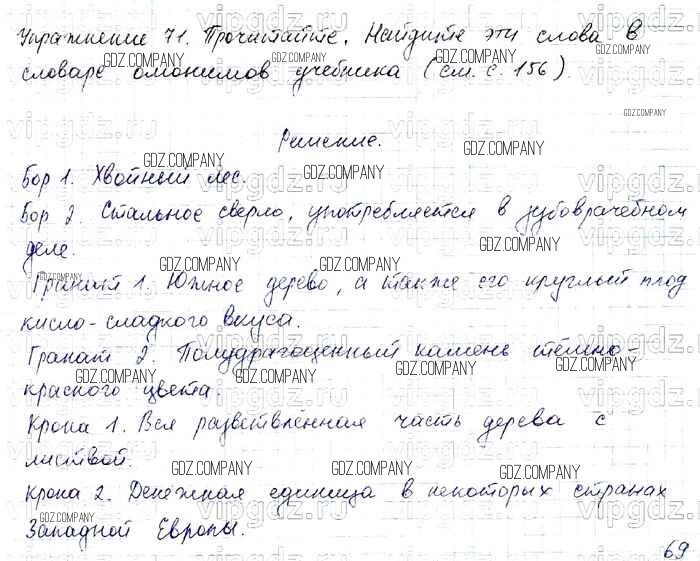 Упражнение 71. Прочитайте. Найдите эти слова в
словаре омонимов учебника (см. с. 156).
Решение.
Бор 1. Хвойный лес.
Бор 2. Стальное сверло, употребляется в зубоврачебном
деле.
Гранат 1. Южное дерево, а также его круглый плод
кисло-сладкого вкуса.
Гранат 2. Полудрагоценный камень тёмно-
красного цвета.
Крона 1. Вся разветвлённая часть дерева с
листвой.
Крона 2. Денежная единица в некоторых странах
Западной Европы.
69